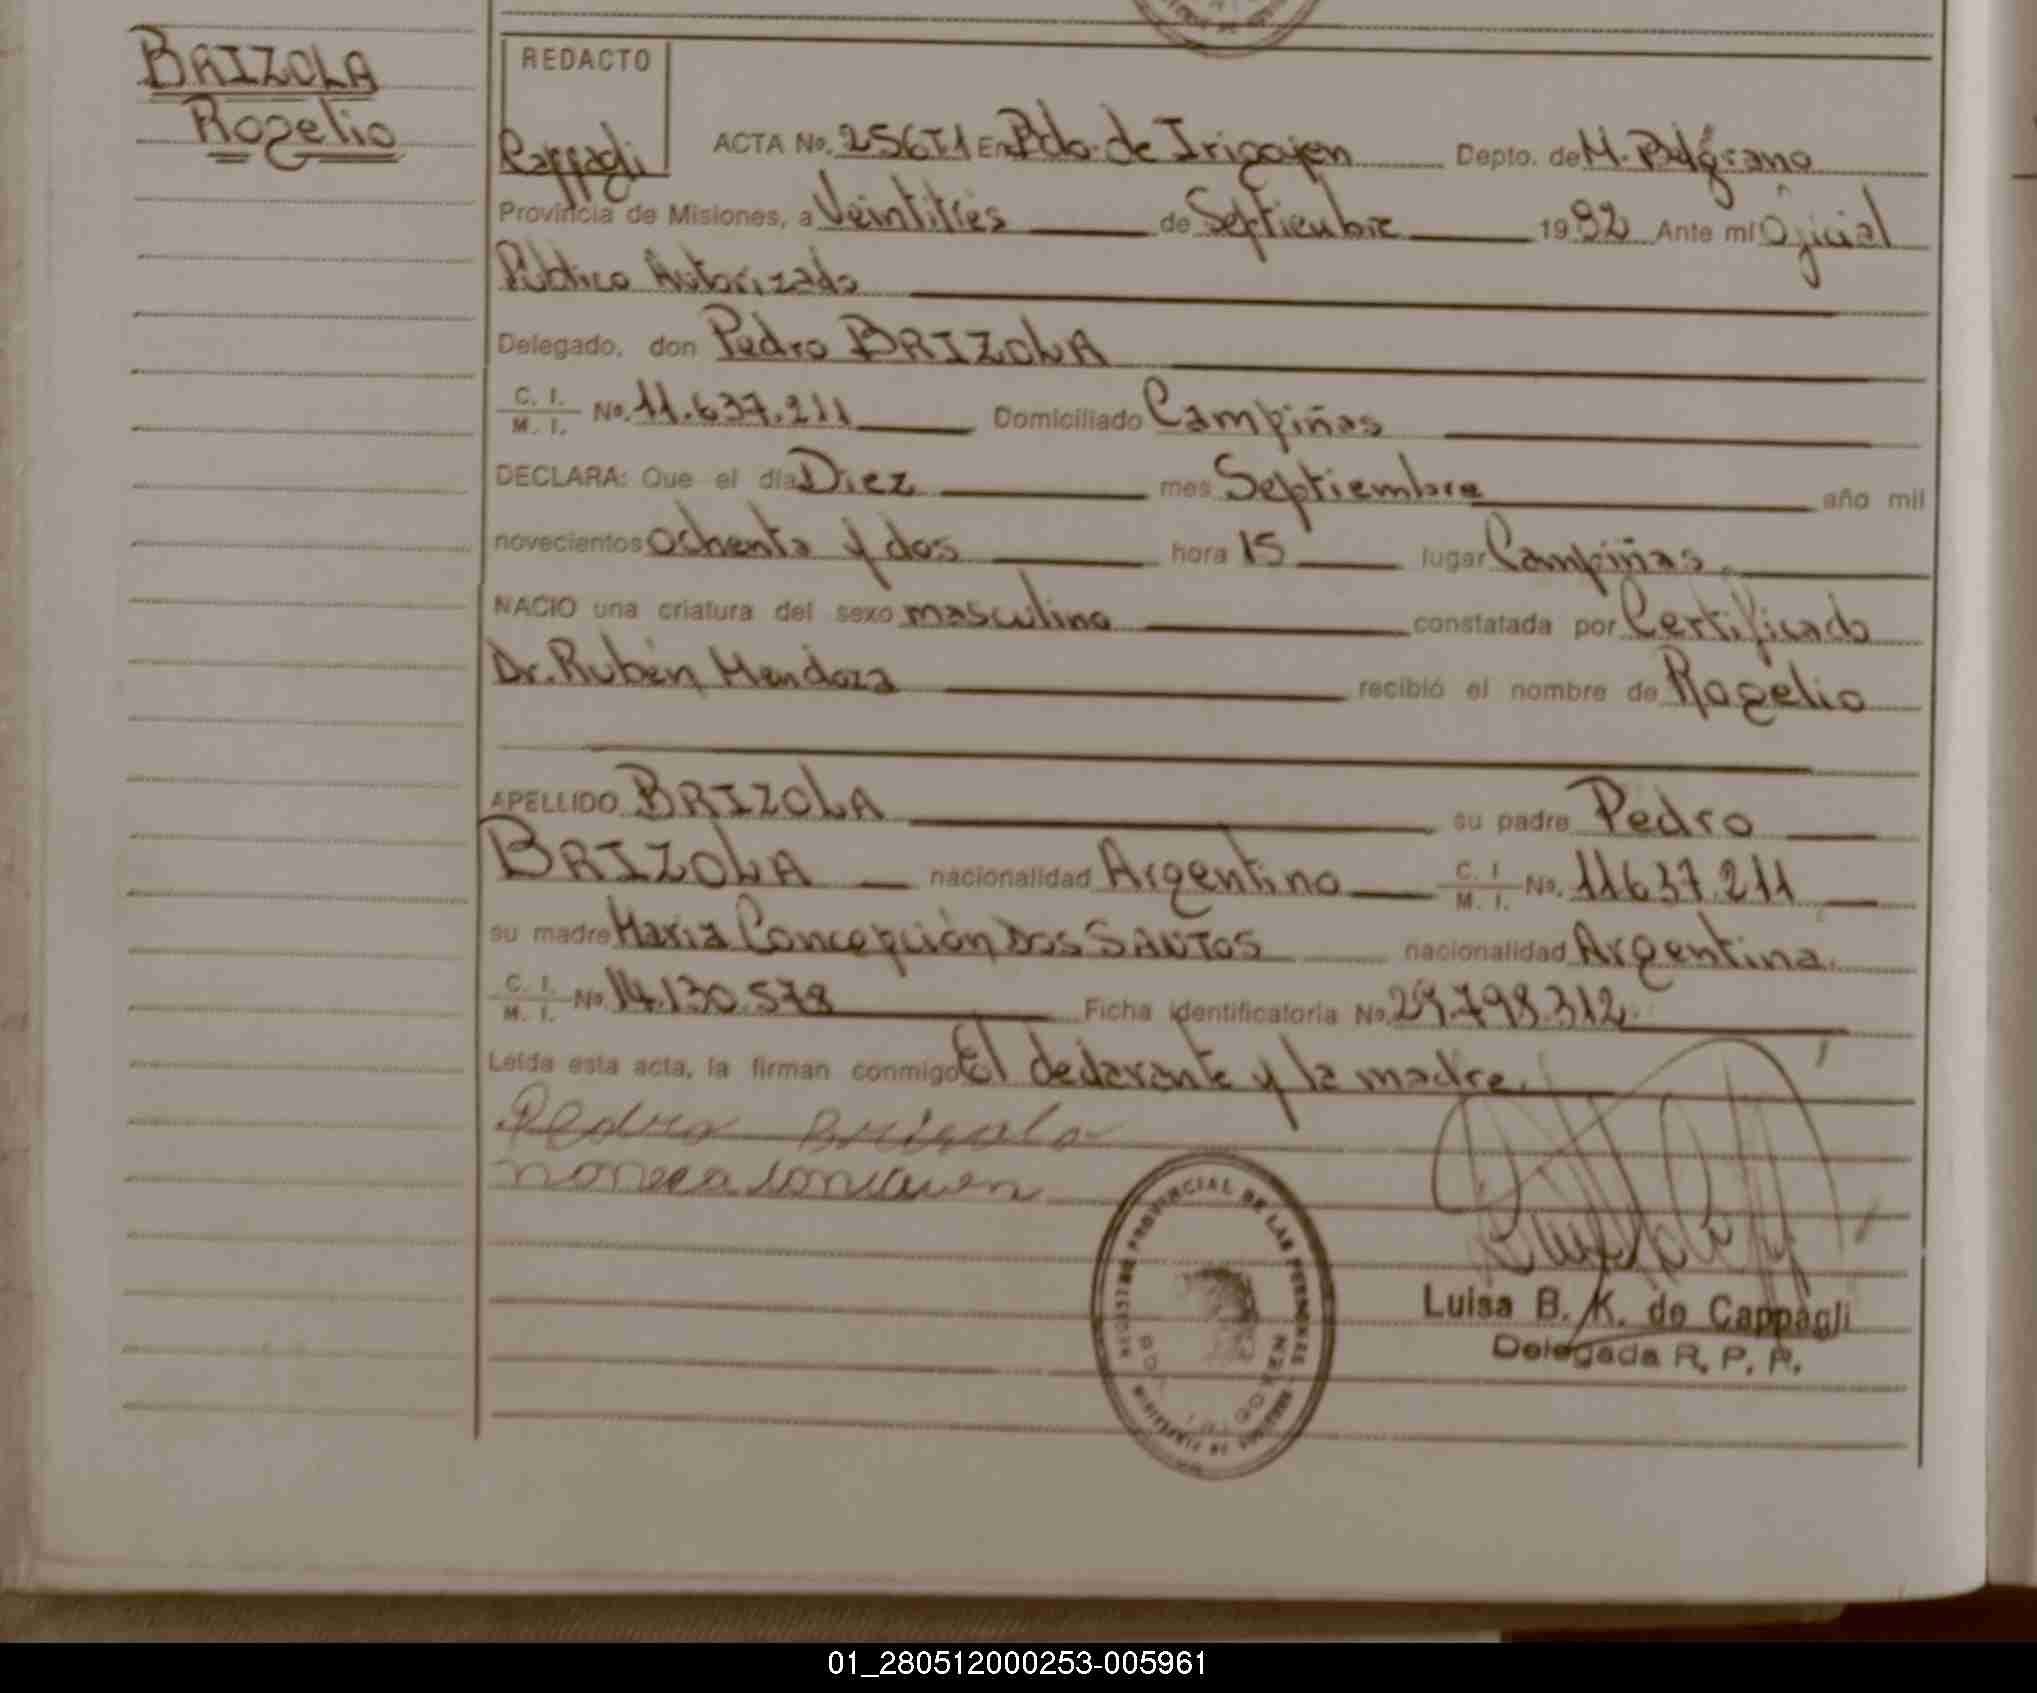 BRIZOLA
Rogelio
REDACTO
Cappagli
ACTA No. 256T1 En Bdo. de Irigoyen Depto. de M. Belgrano
Provincia de Misiones, a Veintitrés de Septiembre 1982 Ante mí Oficial
Público Autorizado
Delegado, don Pedro BRIZOLA
C. I. M. I. No. 11.637.211 Domiciliado Campiñas
DECLARA: Que el día Diez mes Septiembre año mil
novecientos ochenta y dos hora 15 lugar Campiñas
NACIO una criatura del sexo masculino constatada por Certificado
Dr. Rubén Mendoza recibió el nombre de Rogelio
APELLIDO BRIZOLA su padre Pedro
BRIZOLA nacionalidad Argentino C. I M. I. No. 11637.211
su madre María Concepción DOS SANTOS nacionalidad Argentina.
C. I. M. I. No. 14.130.578 Ficha identificatoria No. 29.798.312
Leída esta acta, la firman conmigo El declarante y la madre.
Pedro Brizola
REGISTRO PROVINCIAL DE LAS PERSONAS
Luisa B. K. de Cappagli
Delegada R. P. P.
01_280512000253-005961